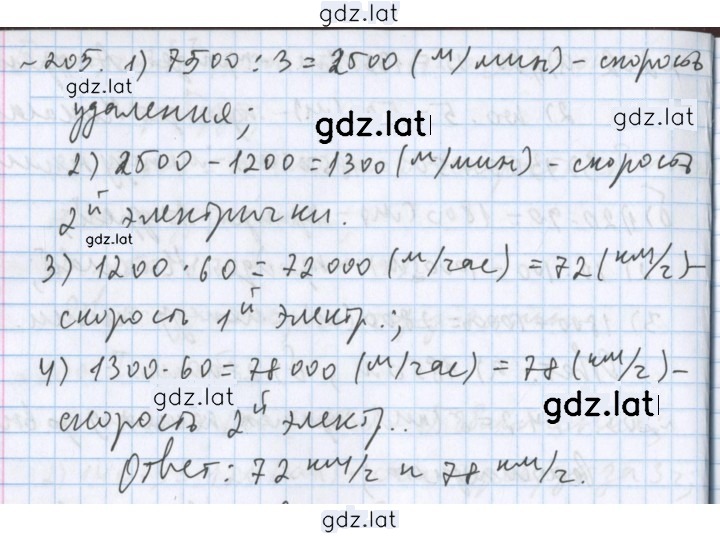 gdz.lat
~205. 1) 7500 : 3 = 2500 (м/мин) - скорость
gdz.lat
удаления;
gdz.lat
gdz.lat
2) 2500 - 1200 = 1300 (м/мин) - скорость
2й электрички.
gdz.lat
3) 1200 · 60 = 72000 (м/час) = 72 (км/ч) -
скорость 1й электр.;
4) 1300 · 60 = 78000 (м/час) = 78 (км/ч) -
gdz.lat
gdz.lat
скорость 2й электр..
Ответ: 72 км/ч и 78 км/ч.
gdz.lat